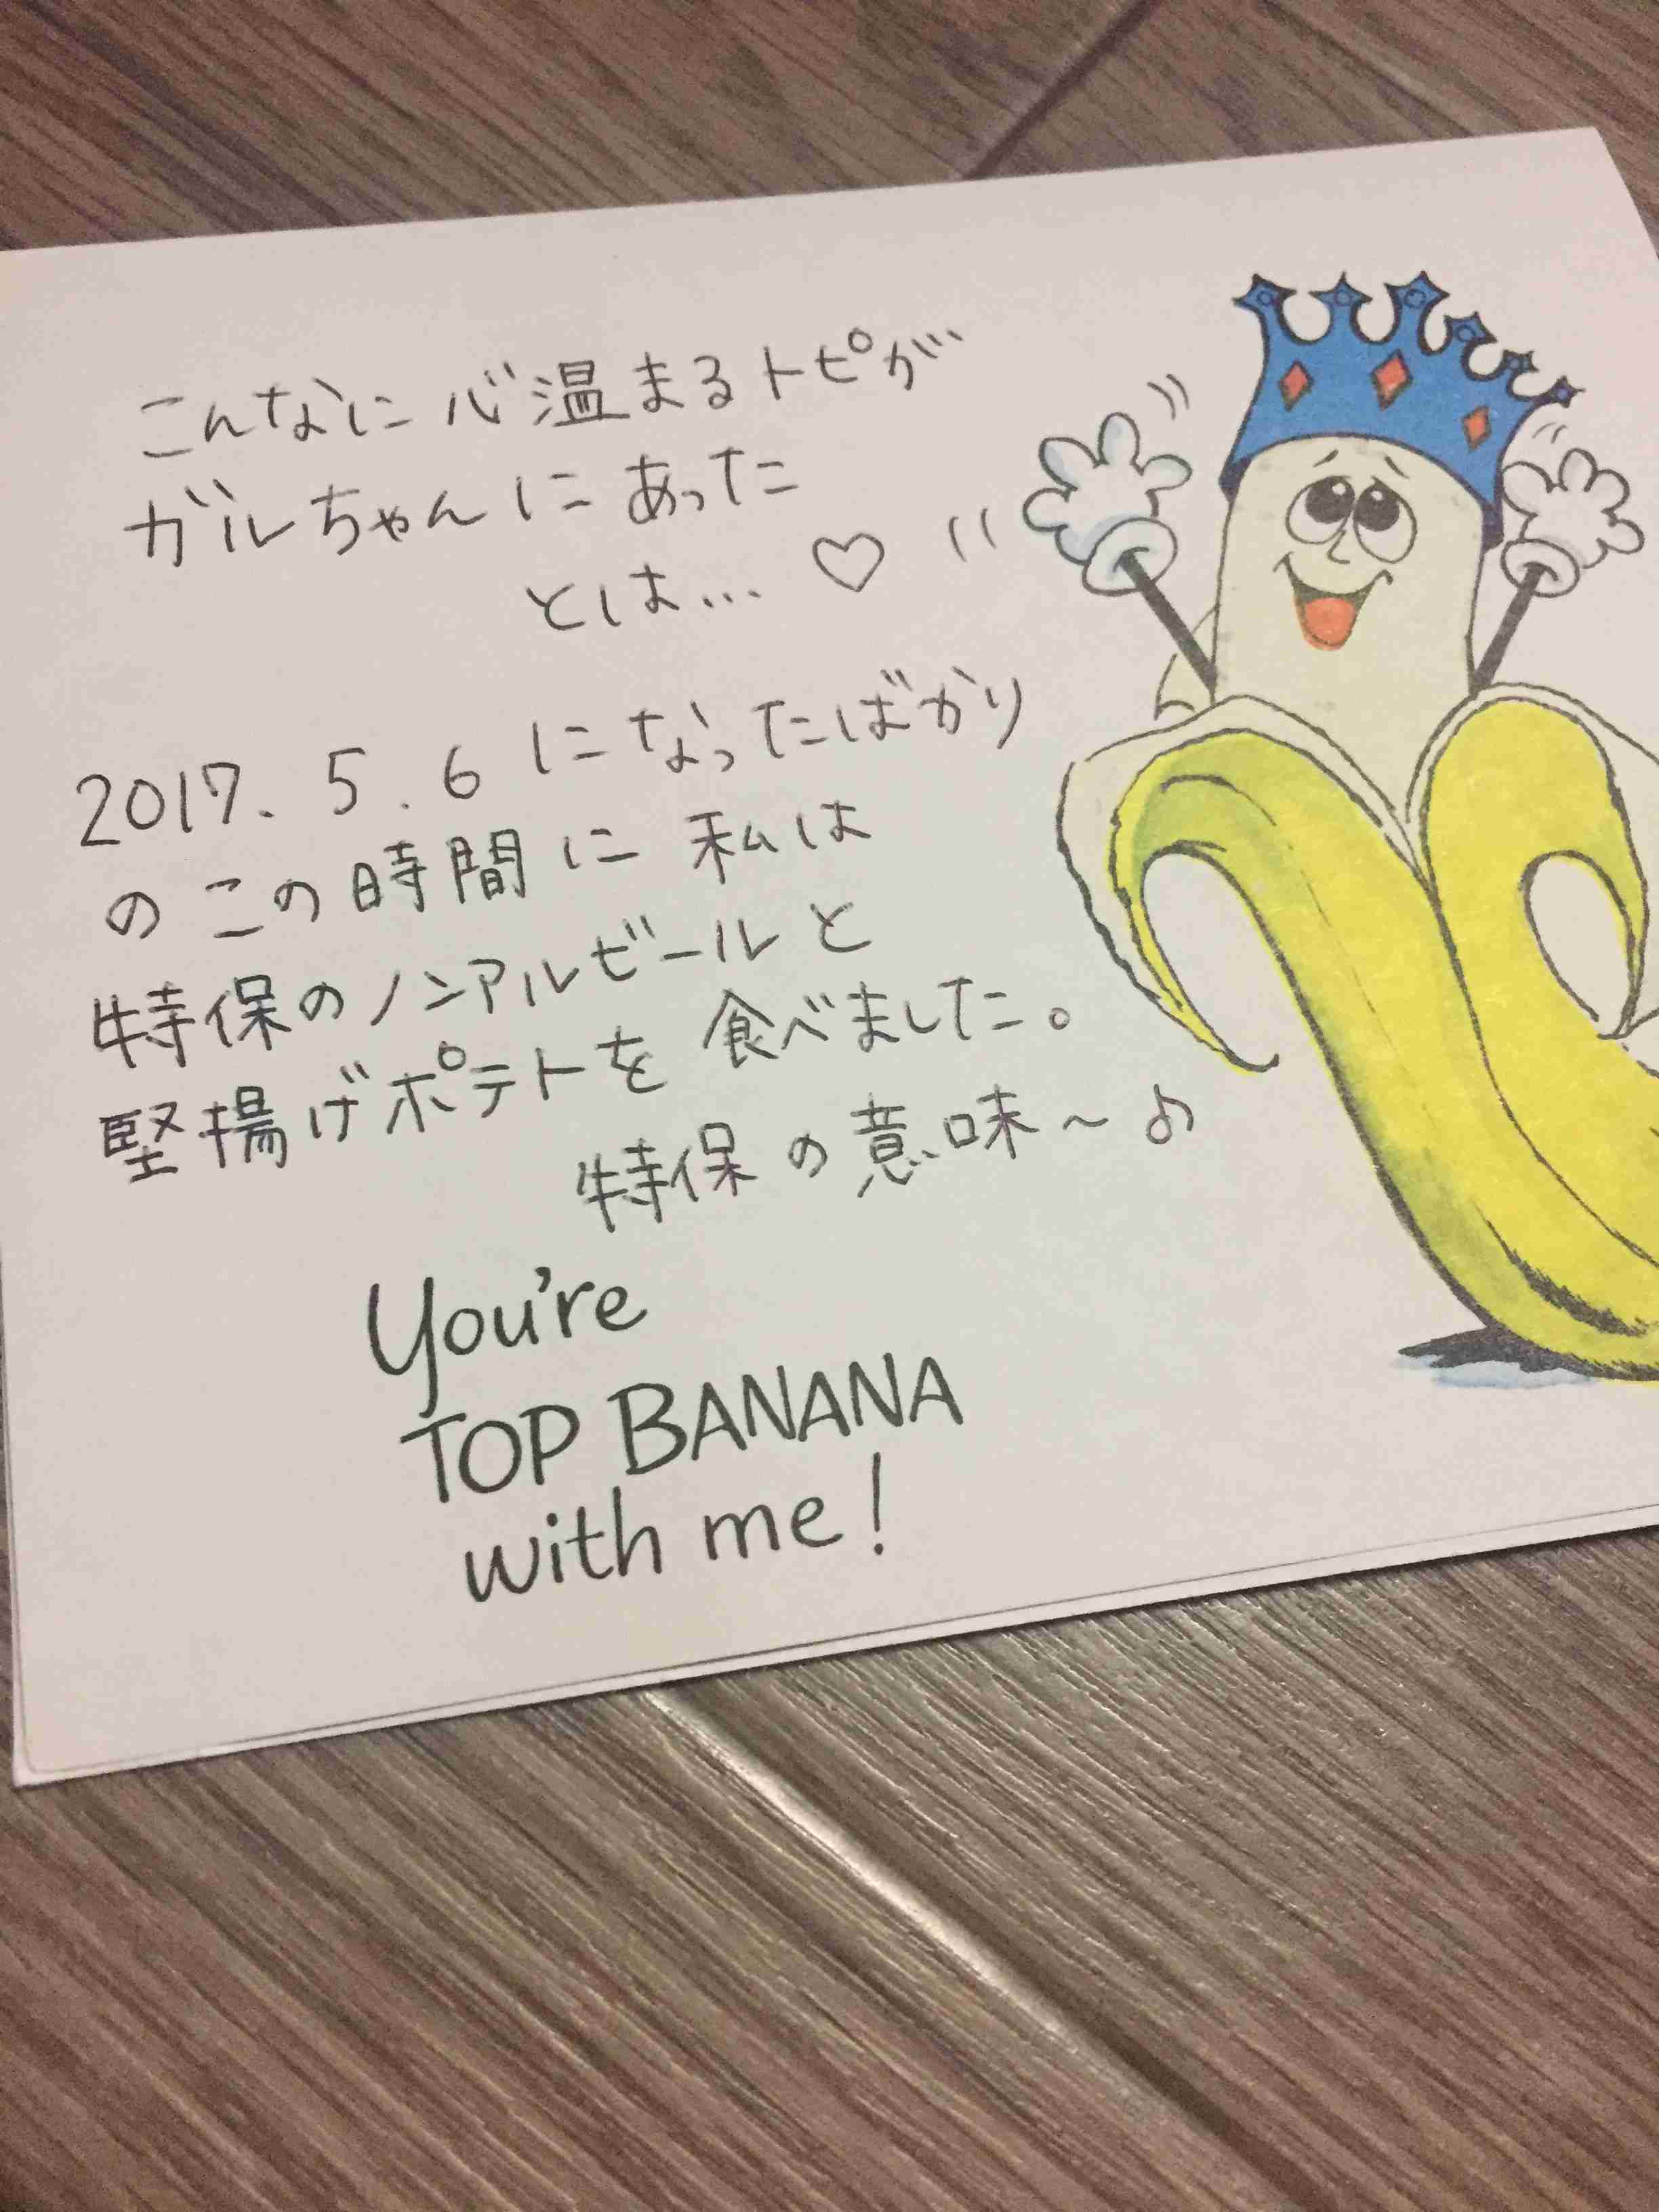 こんなに心温まるトピが
ガルちゃんにあった
とは…♡
2017. 5. 6 になったばかり
のこの時間に私は
特保のノンアルビールと
堅揚げポテトを食べました。
特保の意味～♪
You're
TOP BANANA
with me!